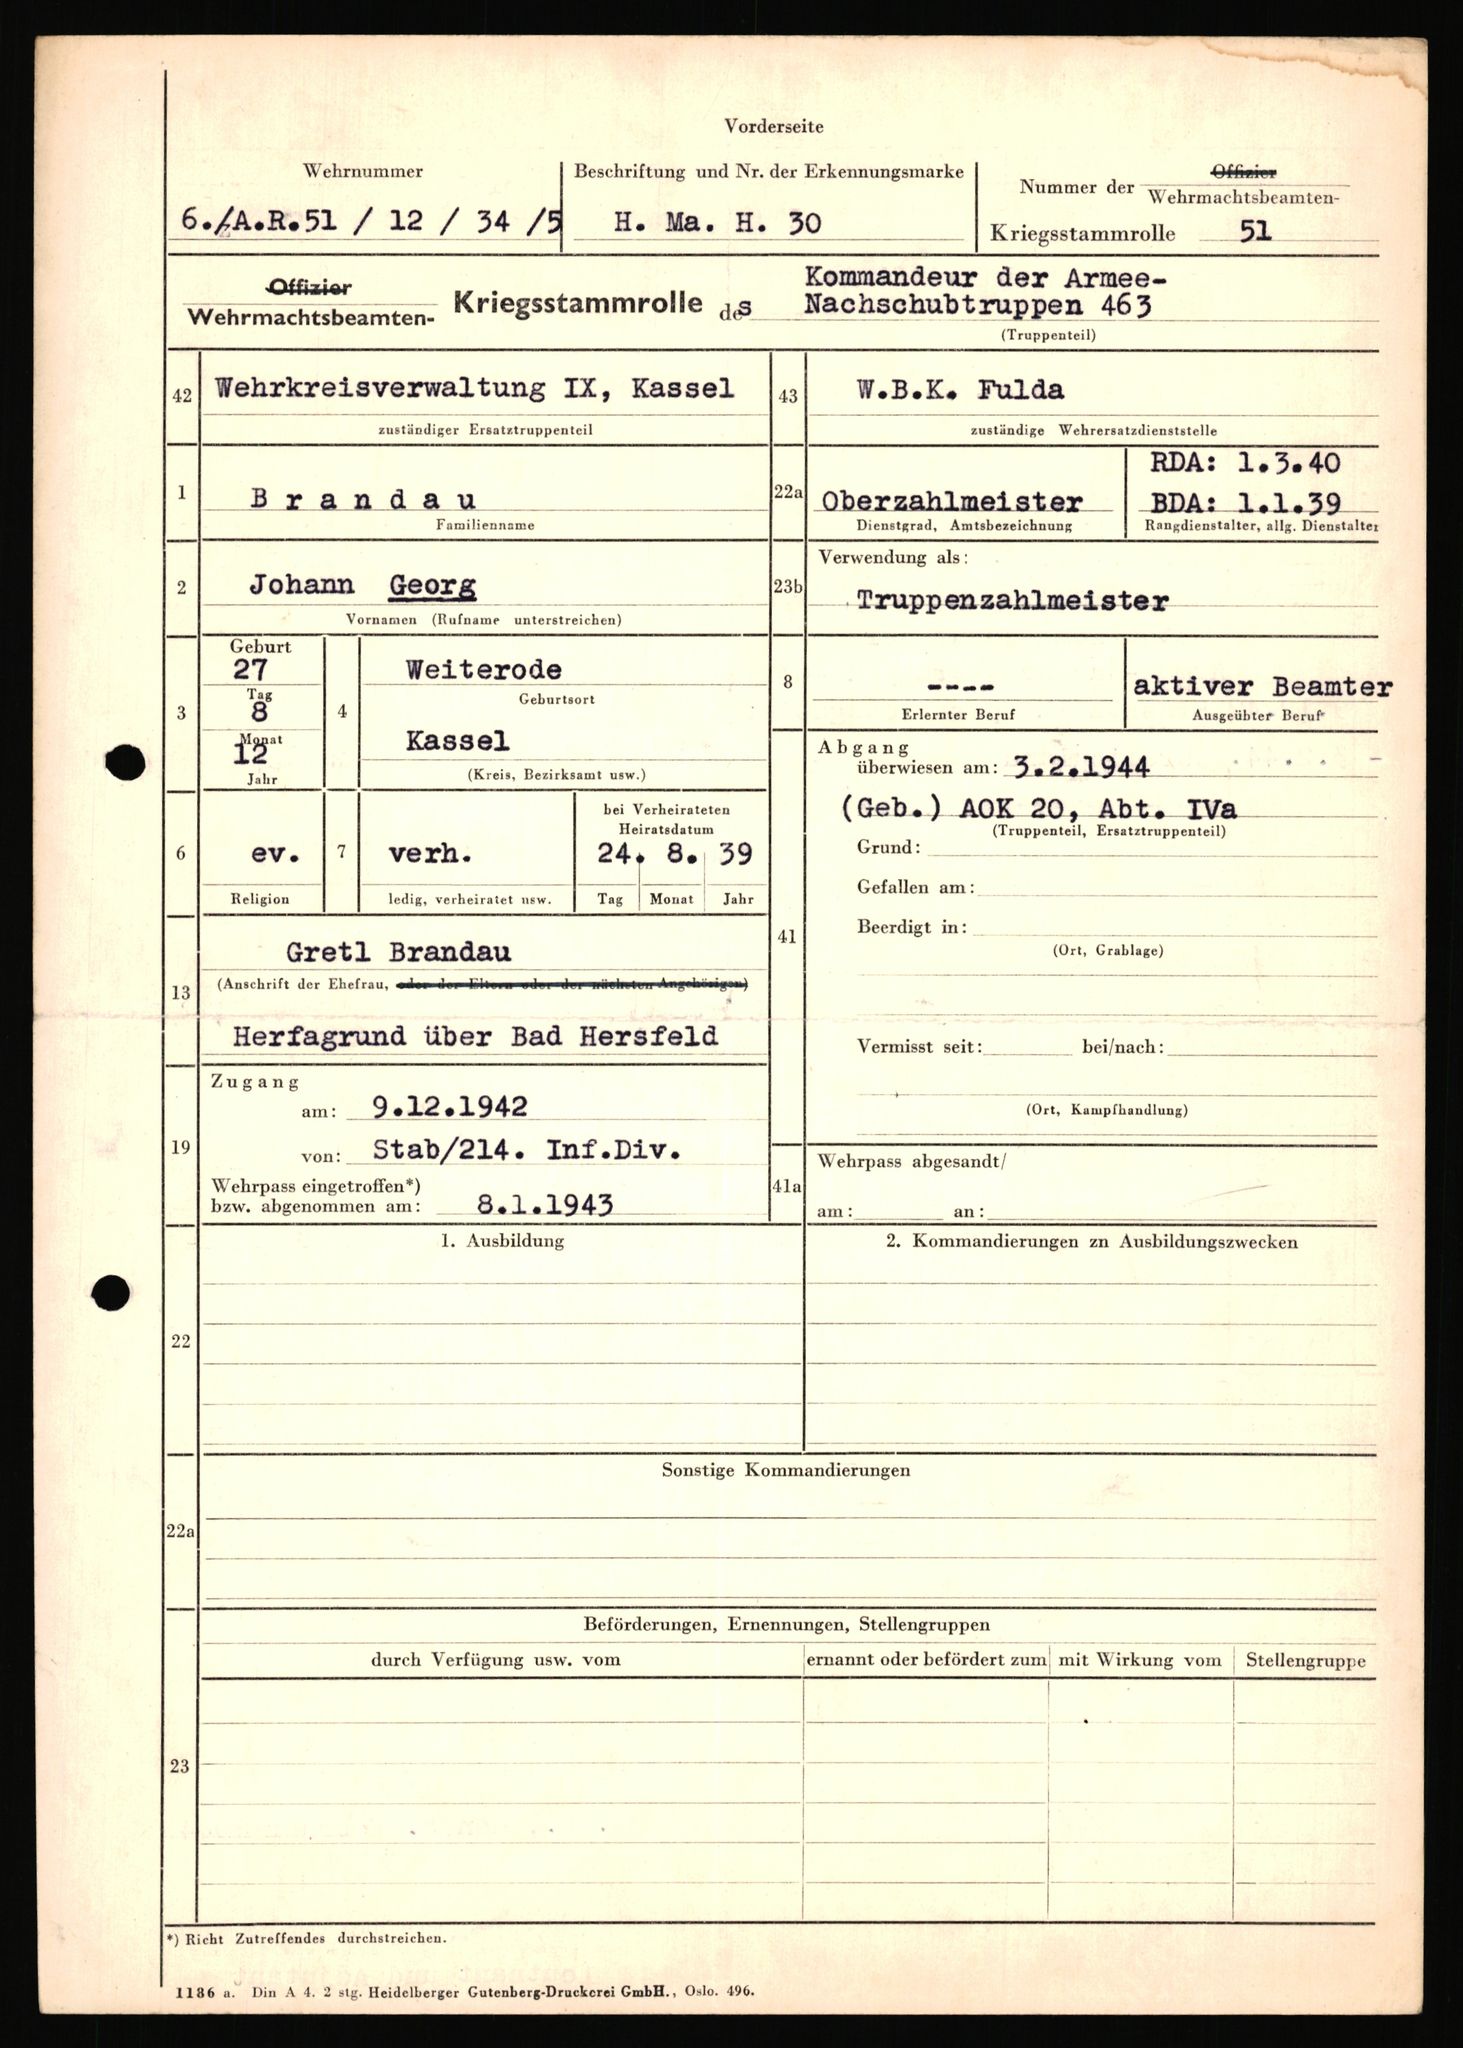 Vorderseite
Wehrnummer
6./A.R.51 / 12 / 34 /5
Beschriftung und Nr. der Erkennungsmarke
H. Ma. H. 30
Nummer der Offizier
Wehrmachtsbeamten-
Kriegsstammrolle 51
Offizier
Wehrmachtsbeamten-
Kriegsstammrolle des
Kommandeur der Armee-
Nachschubtruppen 463
(Truppenteil)
42 Wehrkreisverwaltung IX, Kassel
zuständiger Ersatztruppenteil
43 W.B.K. Fulda
zuständige Wehrersatzdienststelle
1 Brandau
Familienname
22a Oberzahlmeister
Dienstgrad, Amtsbezeichnung
RDA: 1.3.40
BDA: 1.1.39
Rangdienstalter, allg. Dienstalter
2 Johann Georg
Vornamen (Rufname unterstreichen)
23b Verwendung als:
Truppenzahlmeister
3 Geburt
27
Tag
8
Monat
12
Jahr
4 Weiterode
Geburtsort
Kassel
(Kreis, Bezirksamt usw.)
8 ----
Erlernter Beruf
aktiver Beamter
Ausgeübter Beruf
6 ev.
Religion
7 verh.
ledig, verheiratet usw.
bei Verheirateten
Heiratsdatum
24. 8. 39
Tag Monat Jahr
13 Gretl Brandau
(Anschrift der Ehefrau, oder der Eltern oder der nächsten Angehörigen)
Herfagrund über Bad Hersfeld
19 Zugang
am: 9.12.1942
von: Stab/214. Inf.Div.
Wehrpass eingetroffen*)
bzw. abgenommen am: 8.1.1943
41 Abgang
überwiesen am: 3.2.1944
(Geb.) AOK 20, Abt. IVa
(Truppenteil, Ersatztruppenteil)
Grund:
Gefallen am:
Beerdigt in:
(Ort, Grablage)
Vermisst seit: bei/nach:
(Ort, Kampfhandlung)
41a Wehrpass abgesandt/
am: an:
22 1. Ausbildung
2. Kommandierungen zn Ausbildungszwecken
22a Sonstige Kommandierungen
23 Beförderungen, Ernennungen, Stellengruppen
durch Verfügung usw. vom
ernannt oder befördert zum
mit Wirkung vom
Stellengruppe
*) Richt Zutreffendes durchstreichen.
1186 a. Din A 4. 2 stg. Heidelberger Gutenberg-Druckerei GmbH., Oslo. 496.